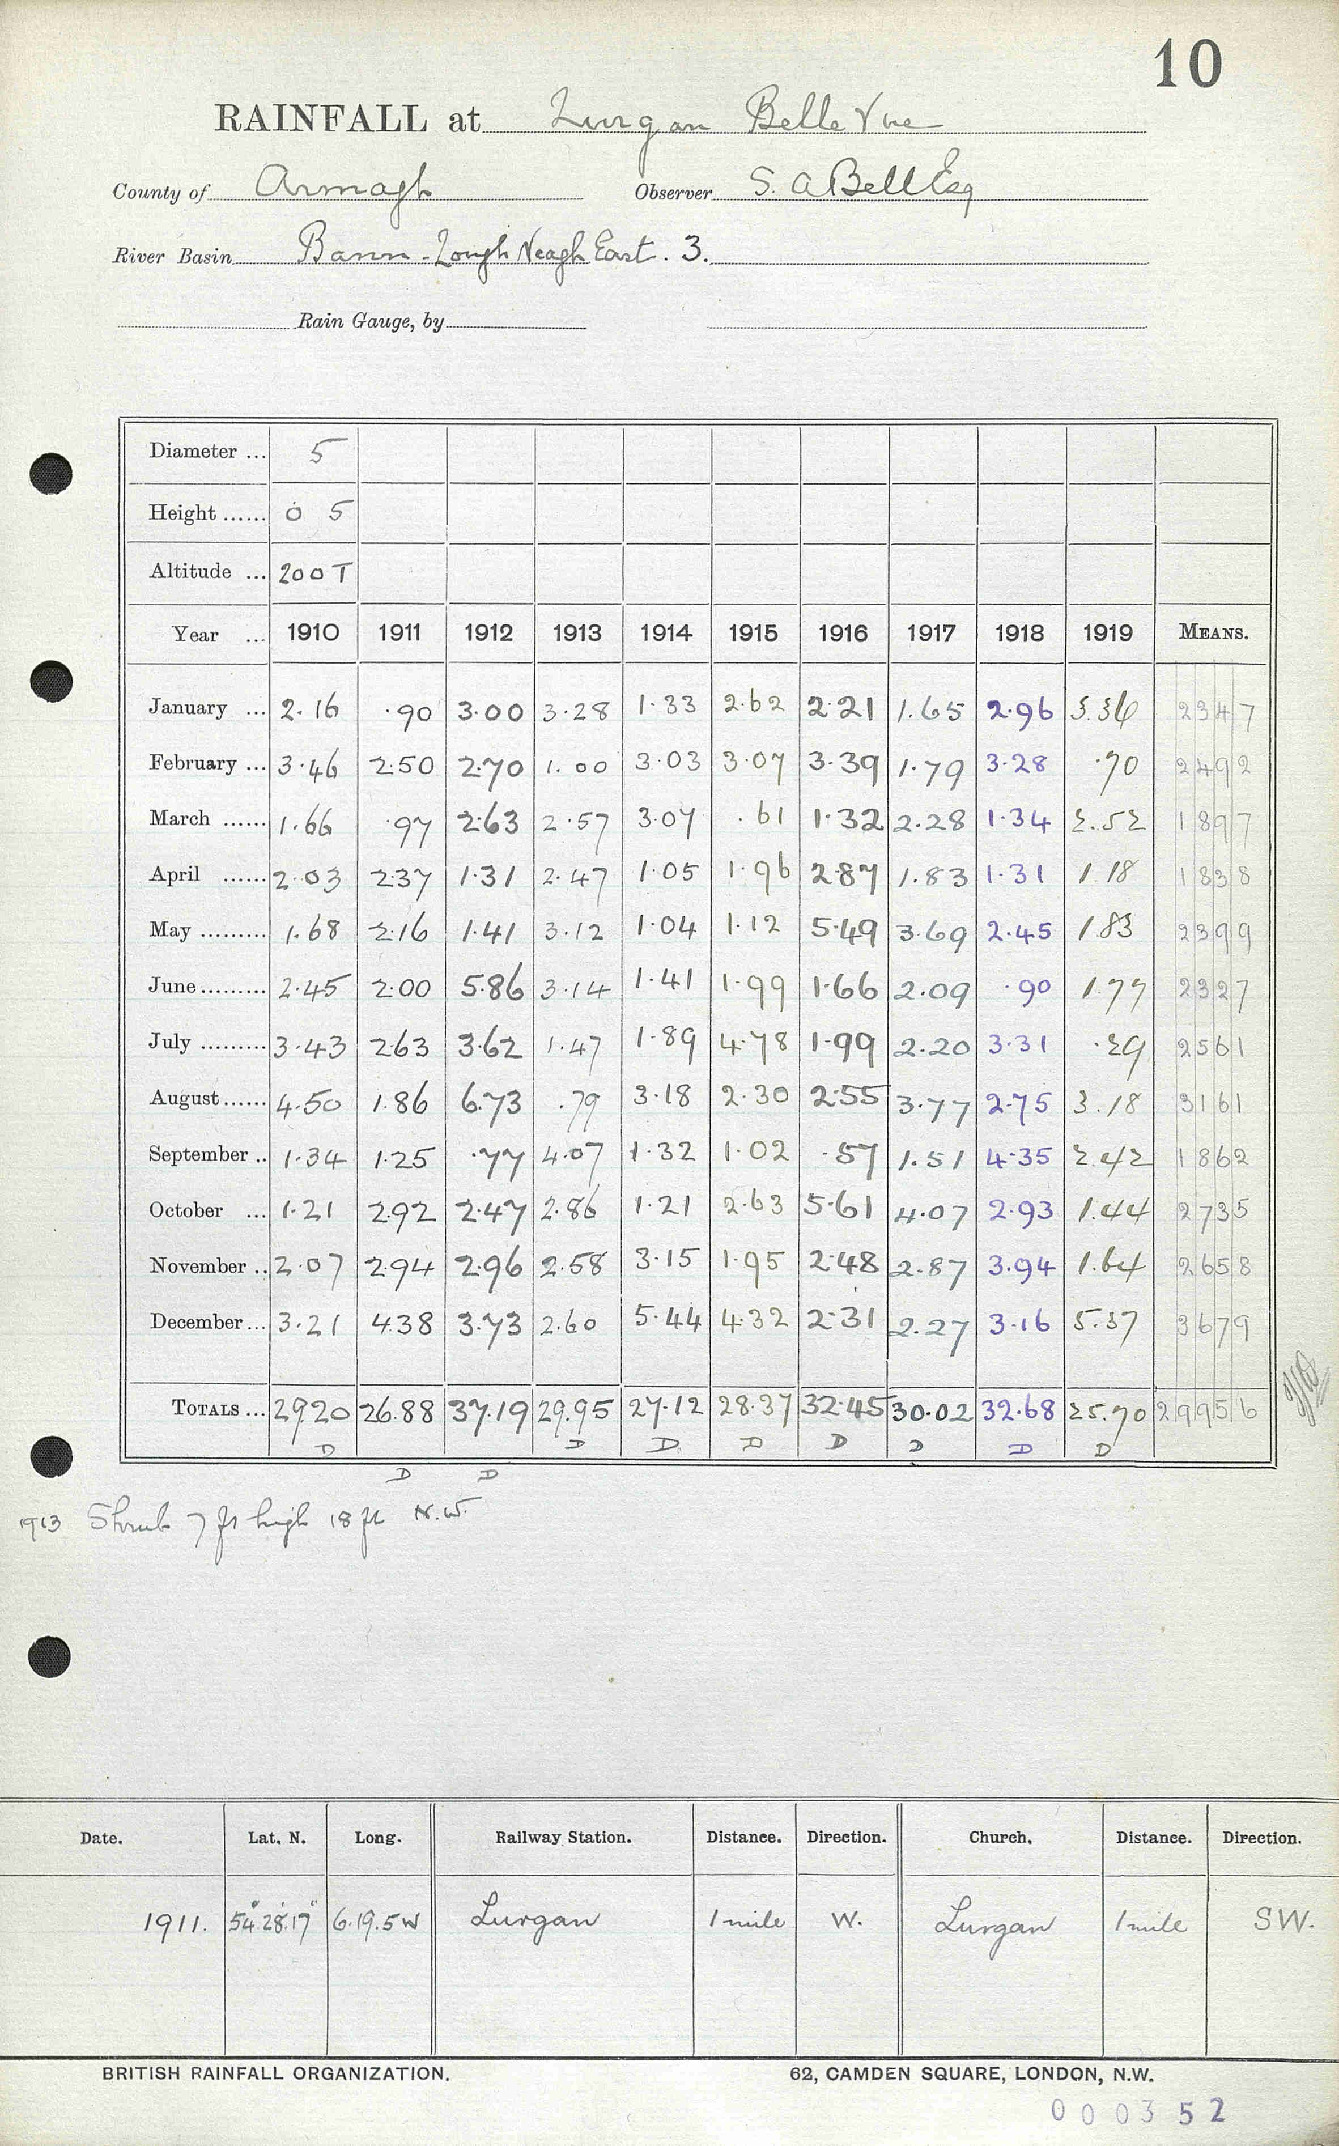 10
RAINFALL at Lurgan Belle Vue
County of Armagh Observer S. A Bell Esq
River Basin Bann - Lough Neagh East . 3.
Rain Gauge, by
Diameter ... 5
Height ...... 0 5
Altitude ... 200 T
Year ... 1910 1911 1912 1913 1914 1915 1916 1917 1918 1919 MEANS.
January ... 2.16 .90 3.00 3.28 1.33 2.62 2.21 1.65 2.96 3.36 2347
February ... 3.46 2.50 2.70 1.00 3.03 3.07 3.39 1.79 3.28 .70 2492
March ...... 1.66 .97 2.63 2.57 3.07 .61 1.32 2.28 1.34 2.52 1897
April ...... 2.03 2.37 1.31 2.47 1.05 1.96 2.87 1.83 1.31 1.18 1838
May ......... 1.68 2.16 1.41 3.12 1.04 1.12 5.49 3.69 2.45 1.83 2399
June ......... 2.45 2.00 5.86 3.14 1.41 1.99 1.66 2.09 .90 1.77 2327
July ......... 3.43 2.63 3.62 1.47 1.89 4.78 1.99 2.20 3.31 .29 2561
August ...... 4.50 1.86 6.73 .79 3.18 2.30 2.55 3.77 2.75 3.18 3161
September .. 1.34 1.25 .77 4.07 1.32 1.02 .57 1.51 4.35 2.42 1862
October ... 1.21 2.92 2.47 2.86 1.21 2.63 5.61 4.07 2.93 1.44 2735
November .. 2.07 2.94 2.96 2.58 3.15 1.95 2.48 2.87 3.94 1.64 2658
December ... 3.21 4.38 3.73 2.60 5.44 4.32 2.31 2.27 3.16 5.37 3679
TOTALS ... 29.20 26.88 37.19 29.95 27.12 28.37 32.45 30.02 32.68 25.70 29956
D D D D D D D D
D D
1913 Shrub 7 ft high 18 ft N.W.
Date. Lat. N. Long. Railway Station. Distance. Direction. Church. Distance. Direction.
1911. 54°28'17" 6.19.5 W Lurgan 1 mile W. Lurgan 1 mile SW.
BRITISH RAINFALL ORGANIZATION. 62, CAMDEN SQUARE, LONDON, N.W.
000352